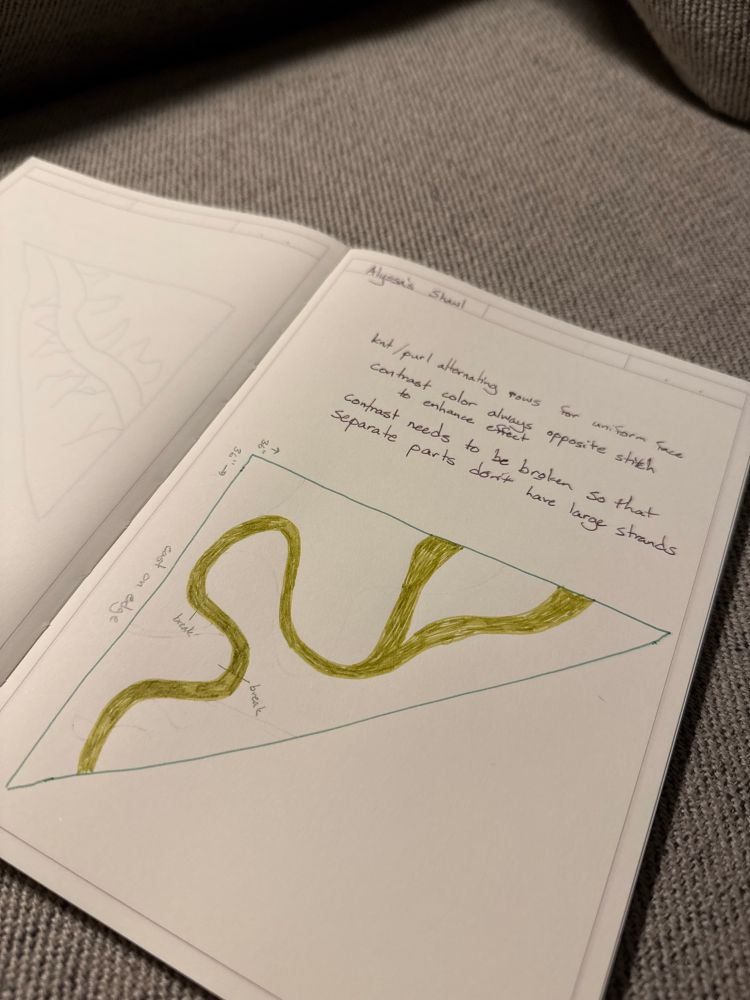 Alyssa's Shawl
knt/purl alternating rows for uniform face
contrast color always opposite stitch
to enhance effect
contrast needs to be broken so that
separate parts don't have large strands
36" →
36" →
cast on edge
break
break